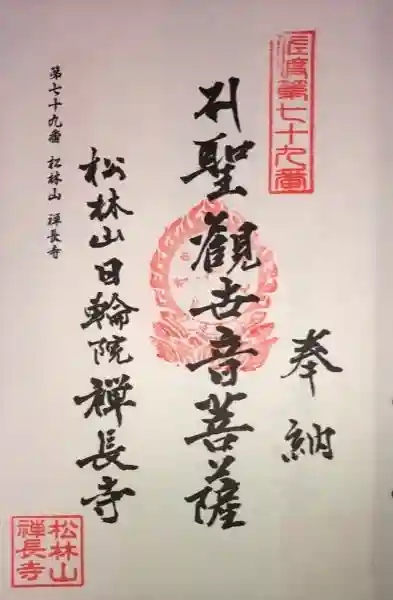 佐渡第七十九番
奉納
聖観世音菩薩
松林山日輪院禅長寺
第七十九番 松林山 禅長寺
松林山
禅長寺